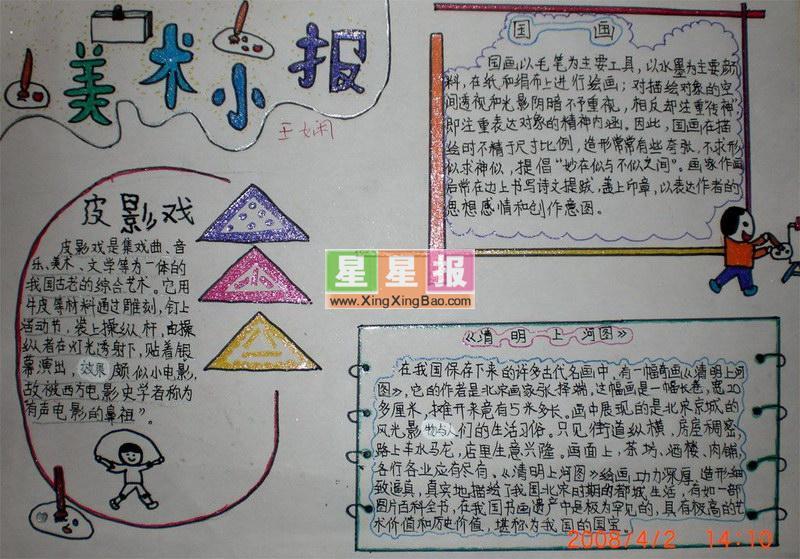 美术小报
王女闲
国画
国画以毛笔为主要工具，以水墨为主要颜
料，在纸和绢布上进行绘画；对描绘对象的空
间透视和光影阴暗不予重视，相反却注重传神
即注重表达对象的精神内涵。因此，国画在描
绘时不精于尺寸比例，造形常常有些夸张，不求形
似求神似，提倡“妙在似与不似之间”。画家作画
后常在边上书写诗文提跋，盖上印章，以表达作者的
思想感情和创作意图。
皮影戏
皮影戏是集戏曲、音
乐、美术、文学等为一体的
我国古老的综合艺术。它用
牛皮等材料通过雕刻，钉上
活动节，装上操纵杆，由操
纵者在灯光透射下，贴着银
幕演出，效果颇似小电影，
故被西方电影史学者称为
有声电影的鼻祖”。
星星报
www.XingXingBao.com
《清明上河图》
在我国保存下来的许多古代名画中，有一幅奇画《清明上河
图》，它的作者是北京画家张择端，这幅画是一幅长卷，宽20
多厘米，推开来竟有5米多长。画中展现的是北京京城的
风光影物与人们的生活习俗。只见街道纵横，房屋稠密，
路上车水马龙，店里生意兴隆。画面上，茶坊、酒楼、肉铺、
各行各业应有尽有，《清明上河图》绘画功力深厚，造形细
致逼真，真实地描绘了我国北宋时期的都城生活，有如一部
图片百科全书，在我国书画遗产中是极为罕见的，具有极高的艺
术价值和历史价值，堪称为我国的国宝。
2008/4/2 14:10